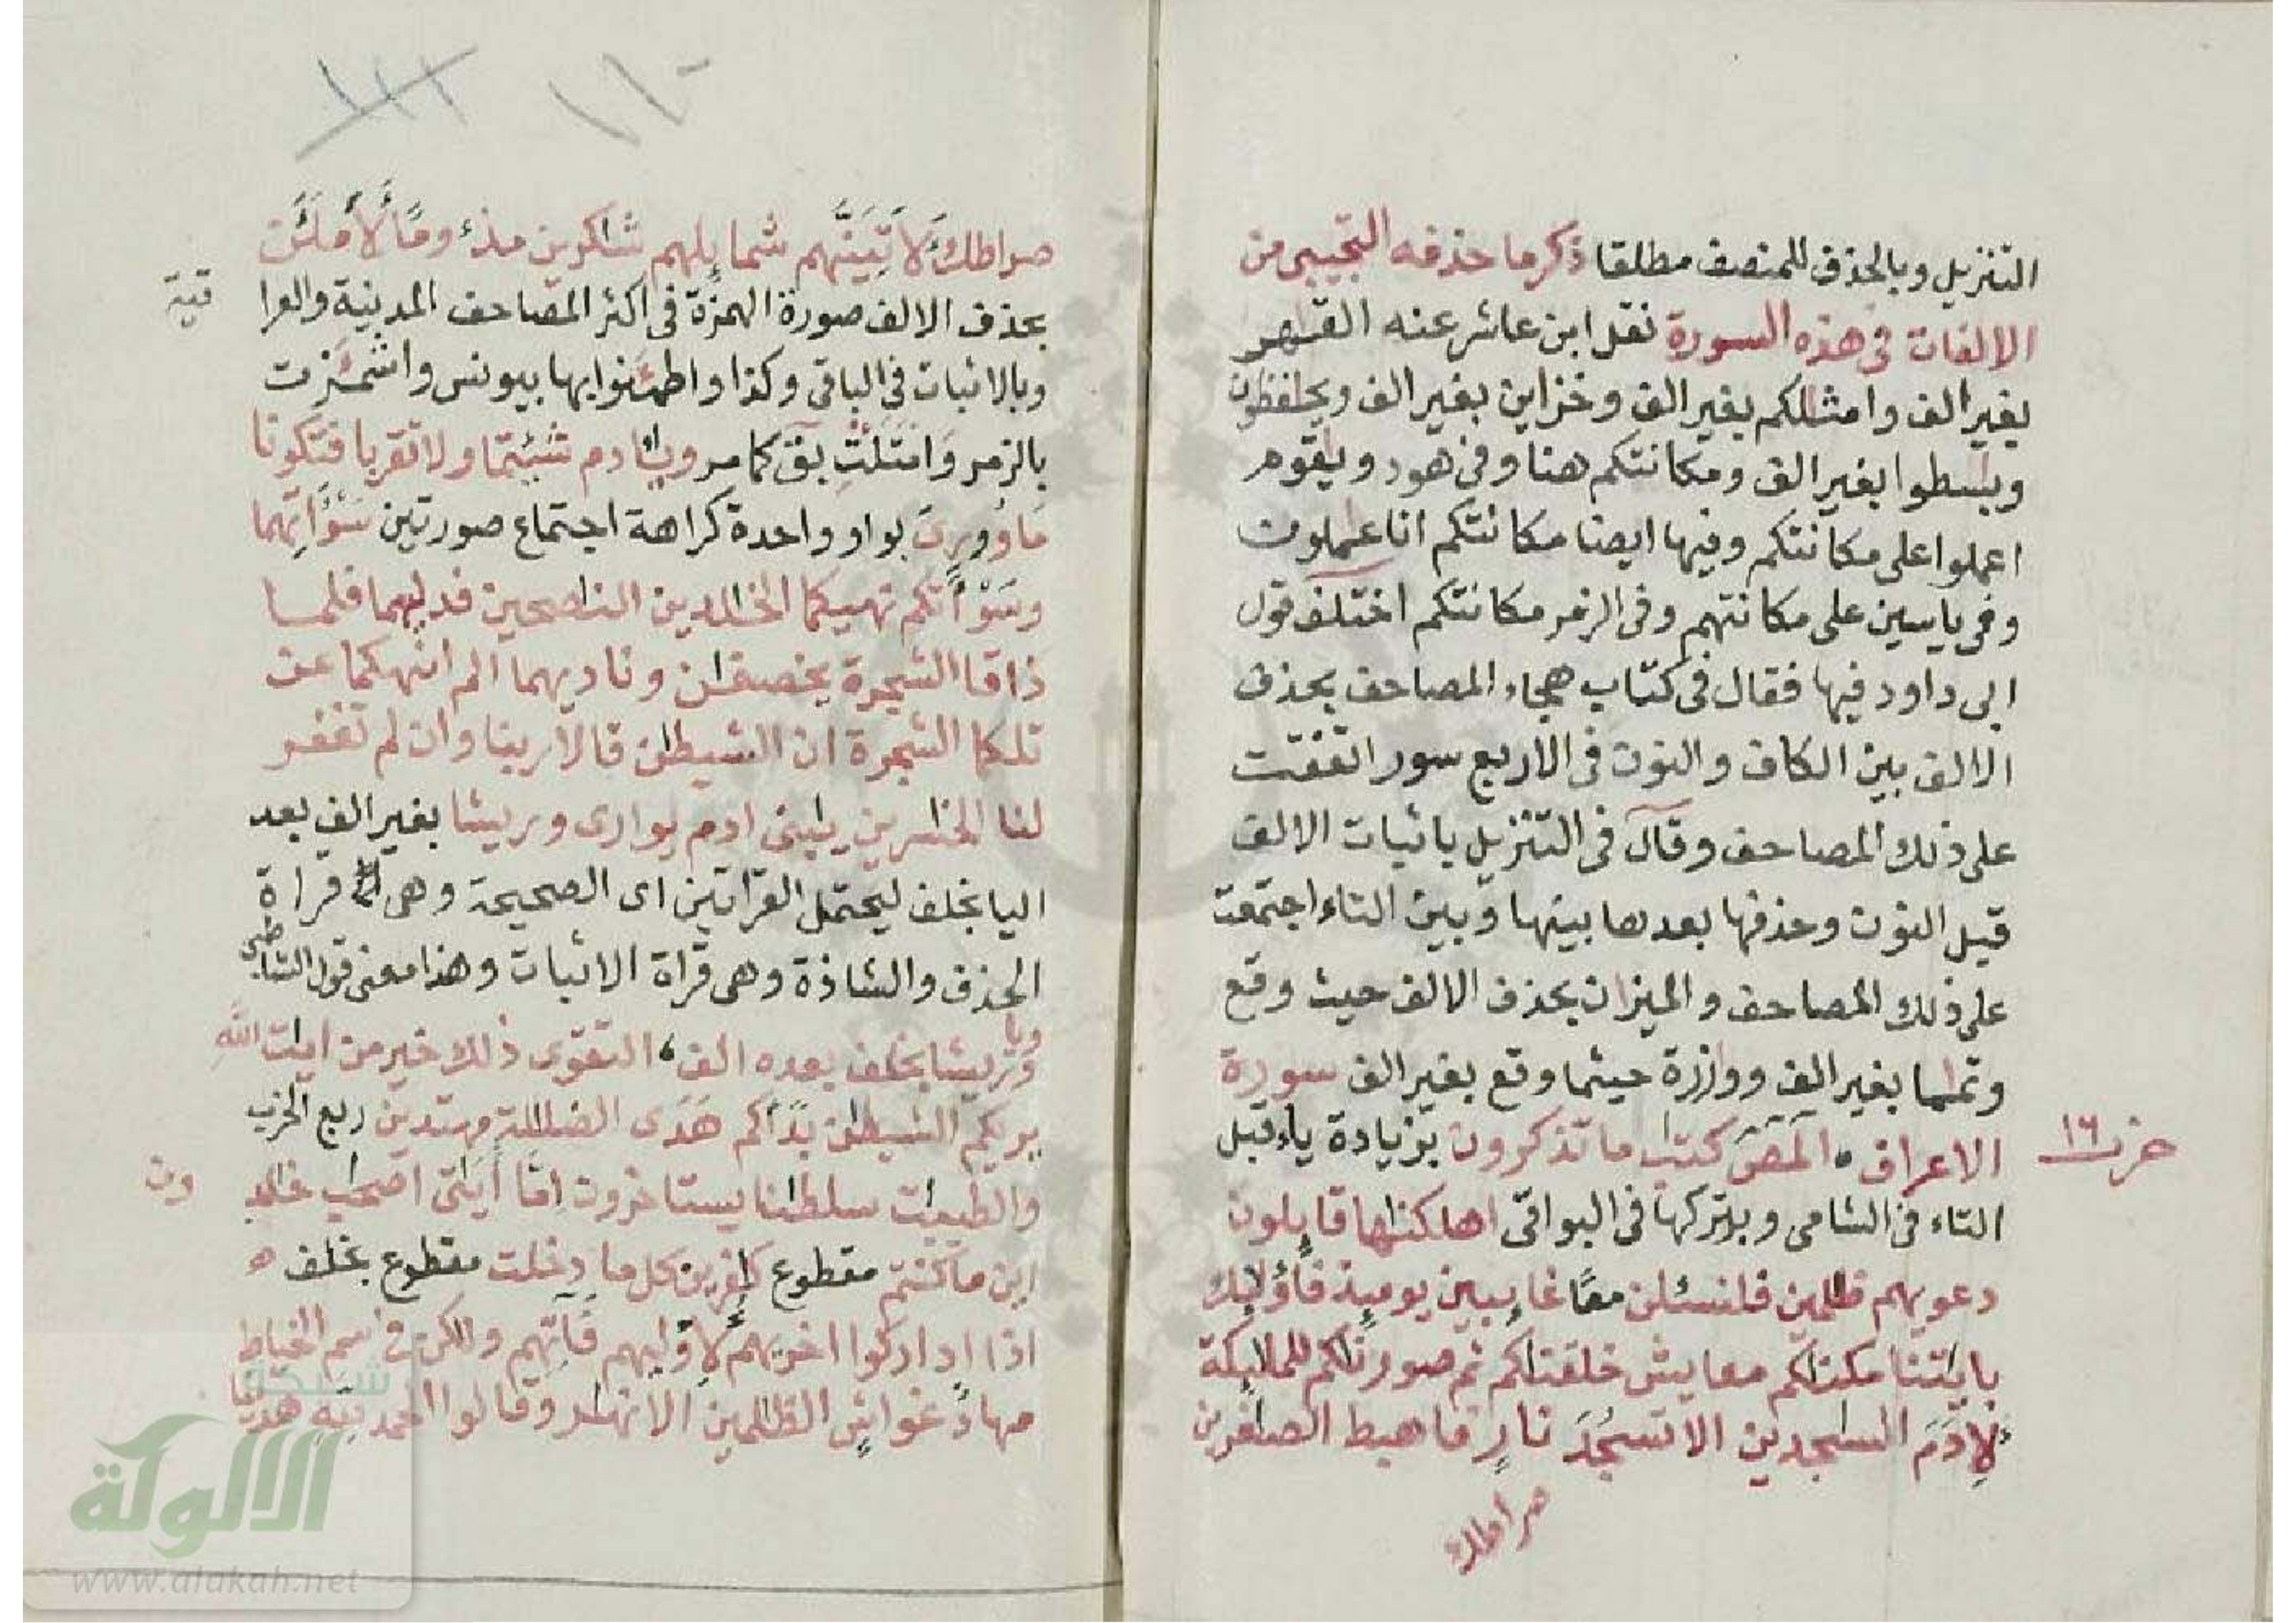 التنزيل وبالحذف للمنصف مطلقا ذكر ما حذفه التجيبى من
الالفات فى هذه السورة نقل ابن عاشر عنه القهر
بغير الف وامثلكم بغير الف وخزاين بغير الف ويحفظون
وبسطوا بغير الف ومكانتكم هنا وفى هود ويقوم
اعملوا على مكانتكم وفيها ايضا مكانتكم انا عملون
وفى ياسين على مكانتهم وفى الزمر مكانتكم اختلف قول
ابى داود فيها فقال فى كتاب هجاء المصاحف بحذف
الالف بين الكاف والنون فى الاربع سور اتفقت
على ذلك المصاحف وقال فى التنزيل باثبات الالف
قبل النون وحذفها بعدها بينها وبين التاء اجتمعت
على ذلك المصاحف والميزان بحذف الالف حيث وقع
وتماما بغير الف ووازرة حيثما وقع بغير الف سورة
الاعراف المص كتب ما تذكرون بزيادة ياء قبل
حزب ١٦
التاء فى الشامى وبتركها فى البواقى اهلكنها قايلون
دعويهم ظلمين فلنسئلن معا غايبين يوميذ فاوليك
بايتنا مكنكم معايش خلقنكم ثم صورنكم للمليكة
لادم السجدين الا تسجد نار فاهبط الصغرين
صراطك
١١٠
صراطك لاتينهم شمايلهم شكرين مذء وما لاملئن
بحذف الالف صورة الهمزة فى اكثر المصاحف المدينية والعرا
قية
وبالاثبات فى الباقى وكذا واطمئنوا بها بيونس واشمئزت
بالزمر وامتلئت بق كما مر ويادم شئتما ولا تقربا فتكونا
ماوورى بواو واحدة كراهة اجتماع صورتين سوءاتهما
وسوءاتكم نهيكما الخلدين النصحين فدليهما فلما
ذاقا الشجرة يخصفن وناديهما الم انهكما عن
تلكما الشجرة ان الشيطن قالا ربنا وان لم تغفر
لنا الخسرين يبنى ادم يوارى وريشا بغير الف بعد
اليا بخلف ليحتمل القراتين اى الصحيحة وهى قراة
الحذف والشاذة وهى قراة الاثبات وهذا معنى قول الشاطبى
وريشا بخلف بعده الف التقوى ذلك خير من ايت الله
يريكم الشيطن بداكم هدى الضللة مهتدين ربع الحزب
والطيبت سلطنا يستاخرون اما ايتى اصحب خلد
ون
اين ما كنتم مقطوع كفرين كل ما دخلت مقطوع بخلف
اذا اداركوا اخريهم لاوليهم فاتهم ولكن فى سم الخياط
مهاد غواش الظلمين الانهر وقالوا الحمد لله هدينا
شبكة
الالوكة
www.alukah.net